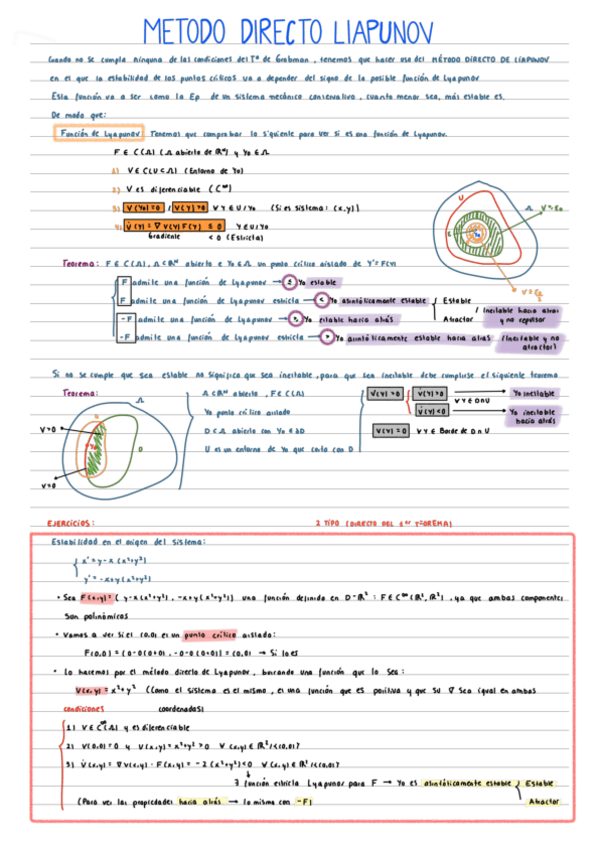 METODO DIRECTO LIAPUNOV
Cuando no se cumpla ninguna de las condiciones del Tª de Grobman, tenemos que hacer uso del MÉTODO DIRECTO DE LIAPUNOV
en el que la estabilidad de los puntos críticos va a depender del signo de la posible función de Lyapunov
Esta función va a ser como la Ep de un sistema mecánico conservativo, cuanto menor sea, más estable es.
De modo que:
Función de Lyapunov: Tenemos que comprobar lo siguiente para ver si es una función de Lyapunov.
F ∈ C(Ω) (Ω abierto de ℝⁿ) y Y₀ ∈ Ω
1) V ∈ C(U⊂Ω) (Entorno de Y₀)
2) V es diferenciable (C∞)
3) V(Y₀)=0 / V(Y)>0 ∀ Y ∈ U/Y₀ (Si es sistema: (x,y))
4) V̇(Y) = ∇V(Y)F(Y) ≤ 0 Y∈U/Y₀
Gradiente < 0 (Estricta)
Teorema: F ∈ C(Ω), Ω⊂ℝᴺ abierto e Y₀∈Ω un punto crítico aislado de Y'=F(Y)
F admite una función de Lyapunov → ≤ Y₀ estable
F admite una función de Lyapunov estricta → < Y₀ asintóticamente estable { Estable
Atractor / Inestable hacia atrás y no repulsor
-F admite una función de Lyapunov → Y₀ estable hacia atrás
-F admite una función de Lyapunov estricta → > Y₀ asintóticamente estable hacia atrás (Inestable y no atractor)
Si no se cumple que sea estable no significa que sea inestable, para que sea inestable debe cumplirse el siguiente teorema
Teorema:
Ω⊂ℝᴺ abierto, F∈C(Ω)
Y₀ punto crítico aislado
D⊂Ω abierto con Y₀ ∈ ∂D
U es un entorno de Y₀ que corta con D
V(Y)>0 { V̇(Y)>0 → Y₀ inestable
V̇(Y)<0 → Y₀ inestable hacia atrás
∀ Y ∈ D∩U
V(Y)=0 ∀ Y ∈ Borde de D ∩ U
V>0
V=0
EJERCICIOS:
2 TIPO (DIRECTO DEL 1ᵉʳ TEOREMA)
Estabilidad en el origen del sistema:
x' = y-x(x²+y²)
y' = -x-y(x²+y²)
• Sea F(x,y) = (y-x(x²+y²), -x-y(x²+y²)) una función definida en D=ℝ² : F∈C∞(ℝ²,ℝ²), ya que ambas componentes
son polinómicas
• Vamos a ver si el (0,0) es un punto crítico aislado:
F(0,0) = (0-0(0+0), -0-0(0+0)) = (0,0) → Si lo es
• Lo hacemos por el método directo de Lyapunov, buscando una función que lo sea:
V(x,y) = x²+y² (Como el sistema es el mismo, es una función que es positiva y que su ∇ sea igual en ambas
condiciones coordenadas)
1) V∈C∞(Ω) y es diferenciable
2) V(0,0)=0 y V(x,y)=x²+y²>0 ∀ (x,y)∈ℝ²/{(0,0)}
3) V̇(x,y) = ∇V(x,y)·F(x,y) = -2(x²+y²)²<0 ∀ (x,y)∈ℝ²/{(0,0)}
∃ función estricta Lyapunov para F → Y₀ es asintóticamente estable { Estable
(Para ver las propiedades hacia atrás → lo mismo con -F)
Atractor